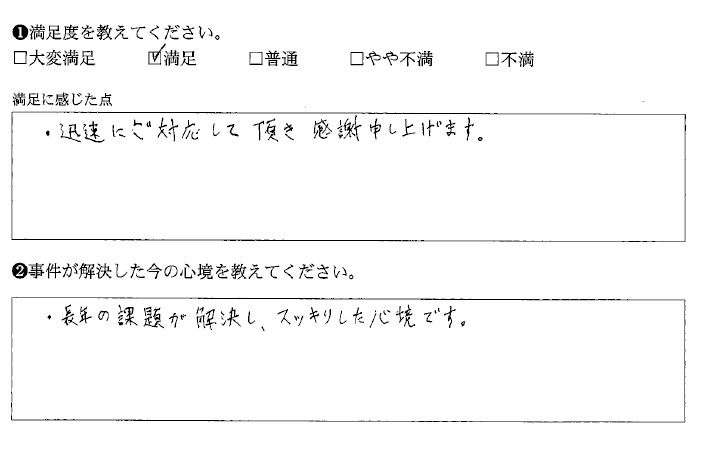 ❶満足度を教えてください。
□大変満足 ☑満足 □普通 □やや不満 □不満
満足に感じた点
・迅速にご対応して頂き感謝申し上げます。
❷事件が解決した今の心境を教えてください。
・長年の課題が解決し、スッキリした心境です。